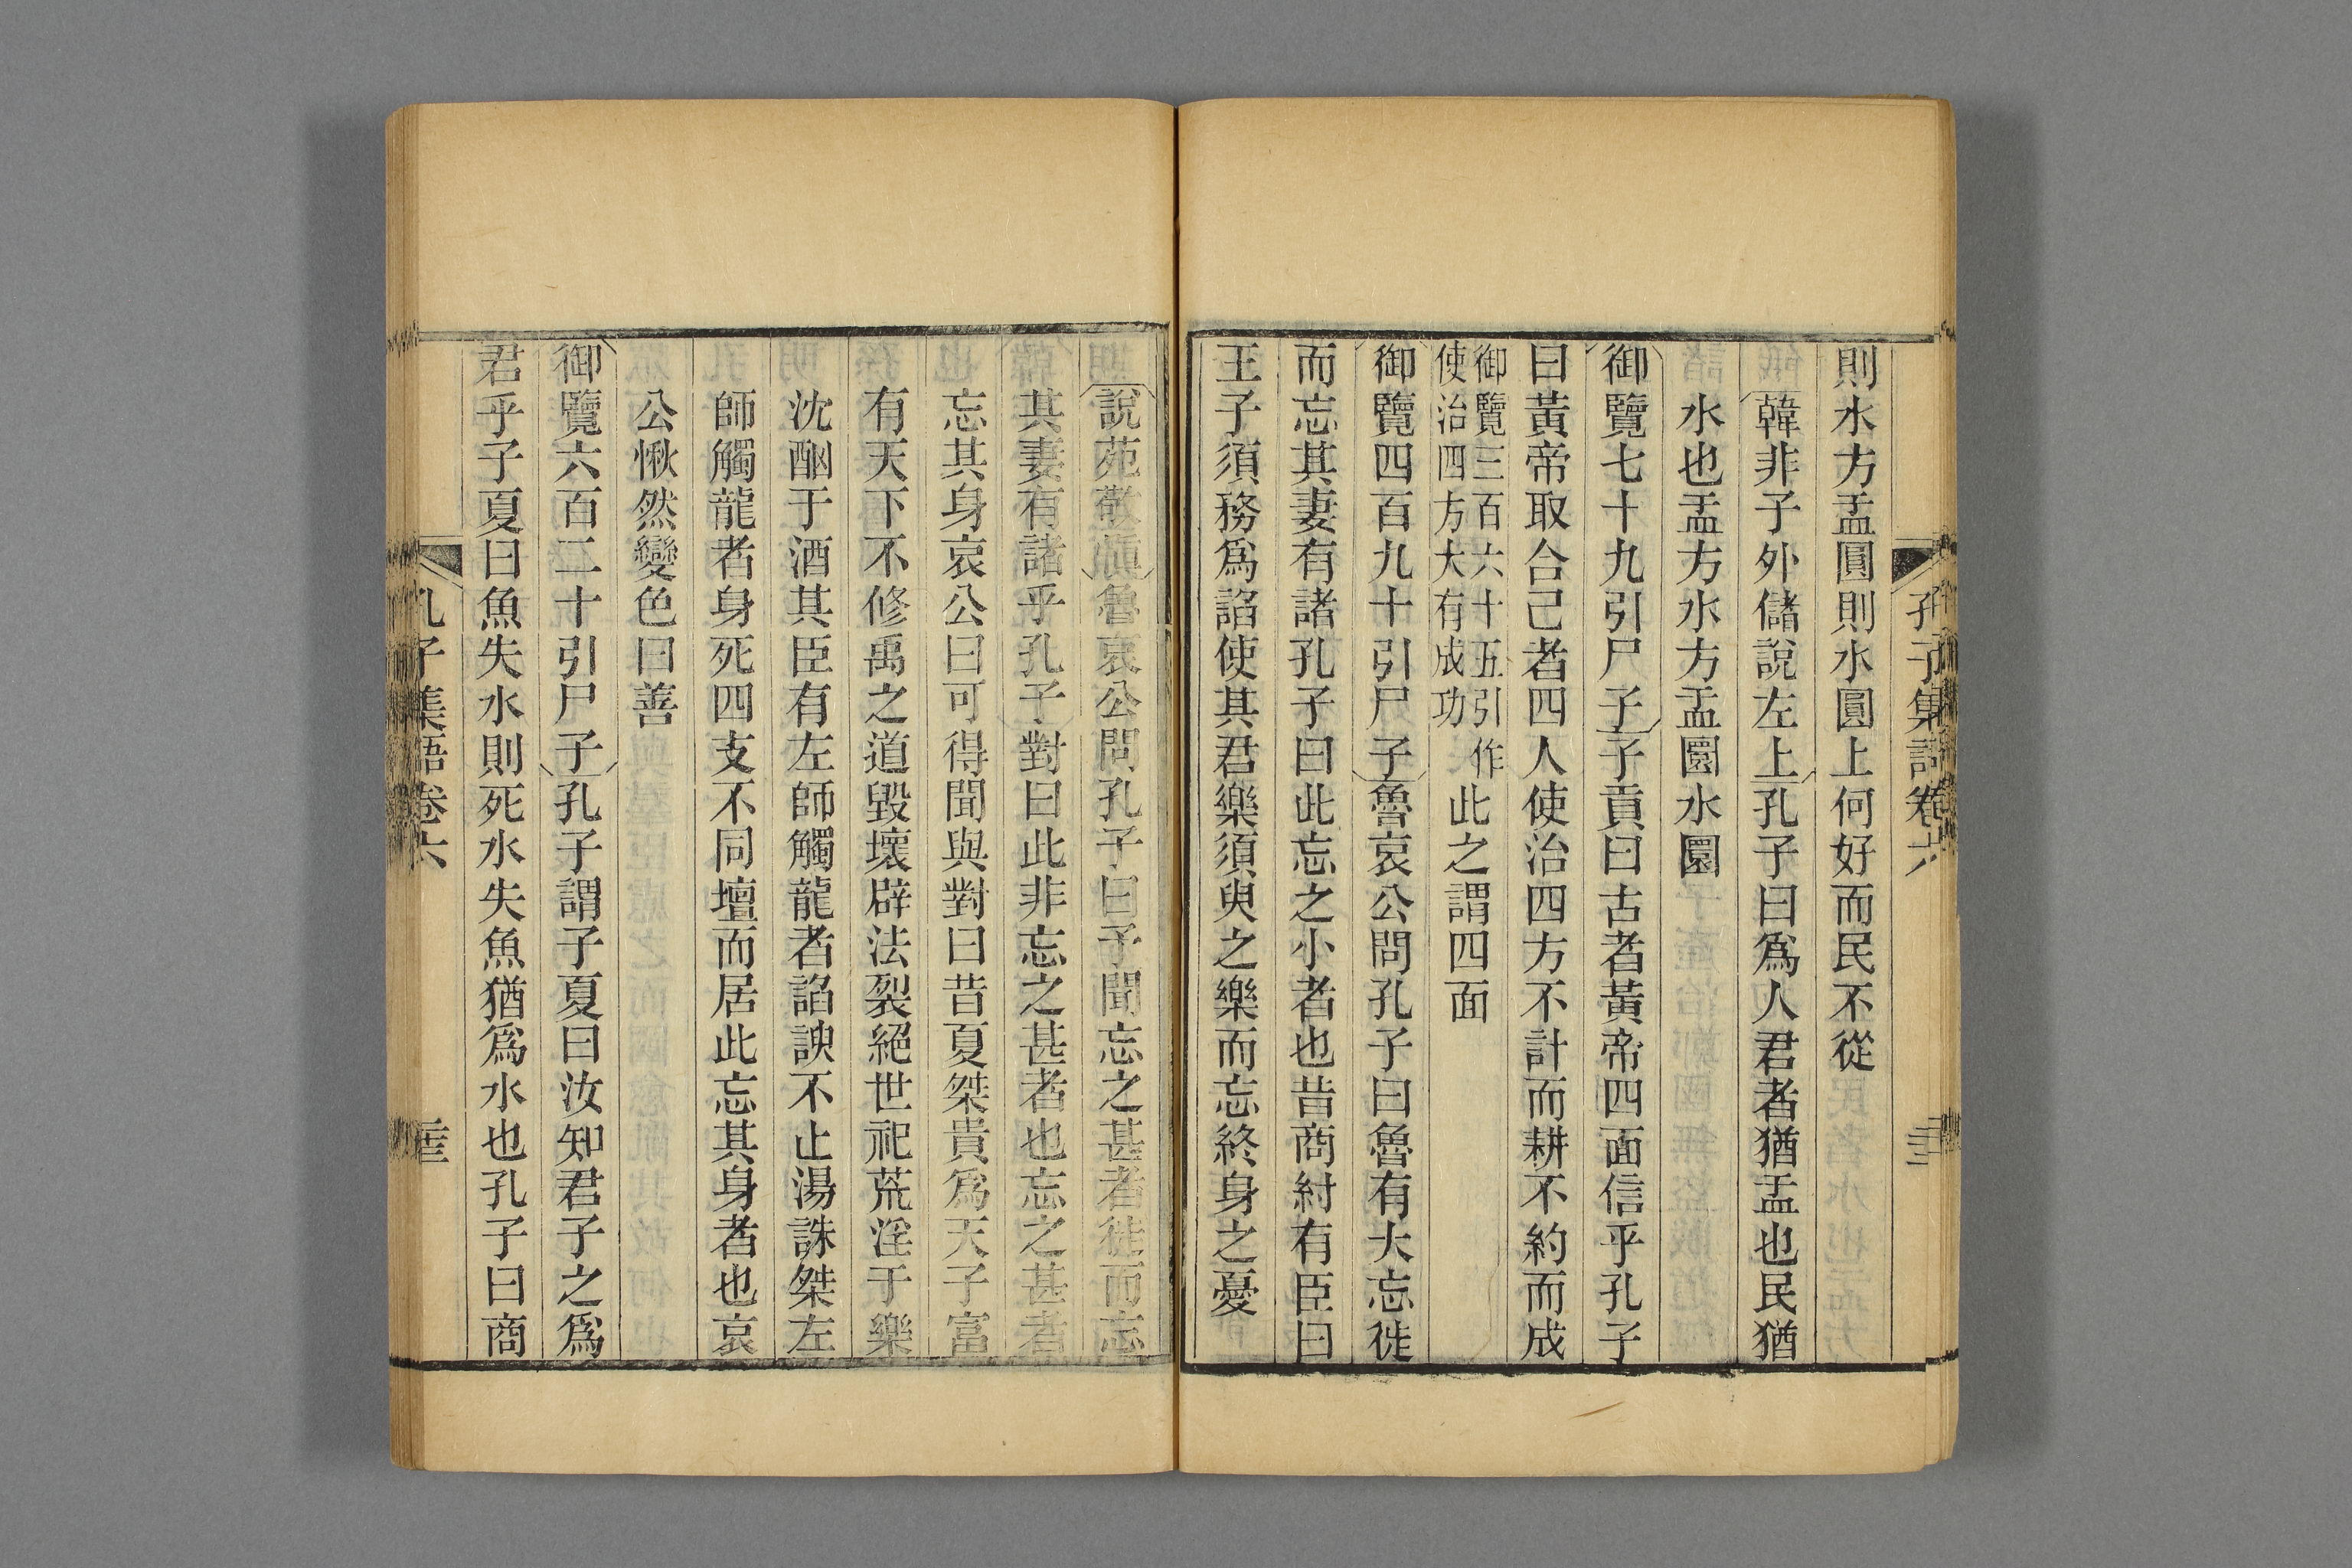 孔子集語卷六
則水方盂圓則水圓上何好而民不從
韓非子外儲說左上孔子曰爲人君者猶盂也民猶
水也盂方水方盂圜水圜
御覽七十九引尸子子貢曰古者黃帝四面信乎孔子
曰黃帝取合己者四人使治四方不計而耕不約而成
御覽三百六十五引作
使治四方大有成功
此之謂四面
御覽四百九十引尸子魯哀公問孔子曰魯有大忘徙
而忘其妻有諸孔子曰此忘之小者也昔商紂有臣曰
王子須務爲諂使其君樂須臾之樂而忘終身之憂
說苑敬愼魯哀公問孔子曰予聞忘之甚者徙而忘
其妻有諸乎孔子對曰此非忘之甚者也忘之甚者
忘其身哀公曰可得聞與對曰昔夏桀貴爲天子富
有天下不修禹之道毀壞辟法裂絕世祀荒淫于樂
沈酗于酒其臣有左師觸龍者諂諛不止湯誅桀左
師觸龍者身死四支不同壇而居此忘其身者也哀
公愀然變色曰善
御覽六百二十引尸子孔子謂子夏曰汝知君子之爲
君乎子夏曰魚失水則死水失魚猶爲水也孔子曰商
孔子集語卷六